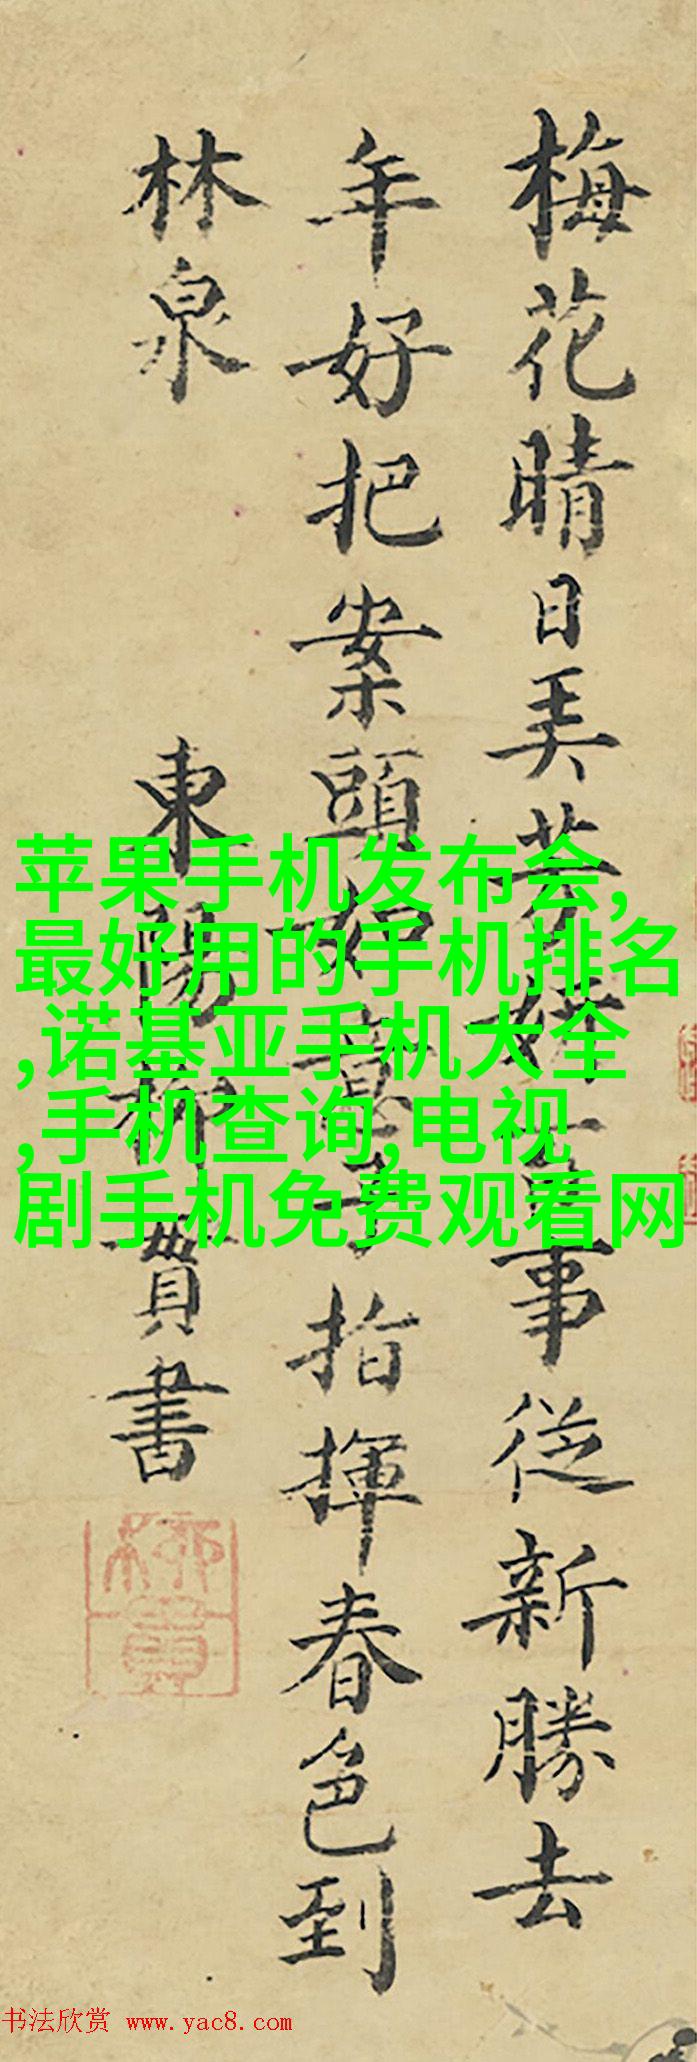 梅花晴日美芳妍事從新勝去
年好把案頭如意子指揮春色到
林泉
東陽柳貫書
柳貫
苹果手机发布会,
最好用的手机排名
,诺基亚手机大全
,手机查询,电视
剧手机免费观看网
书法欣赏 www.yac8.com